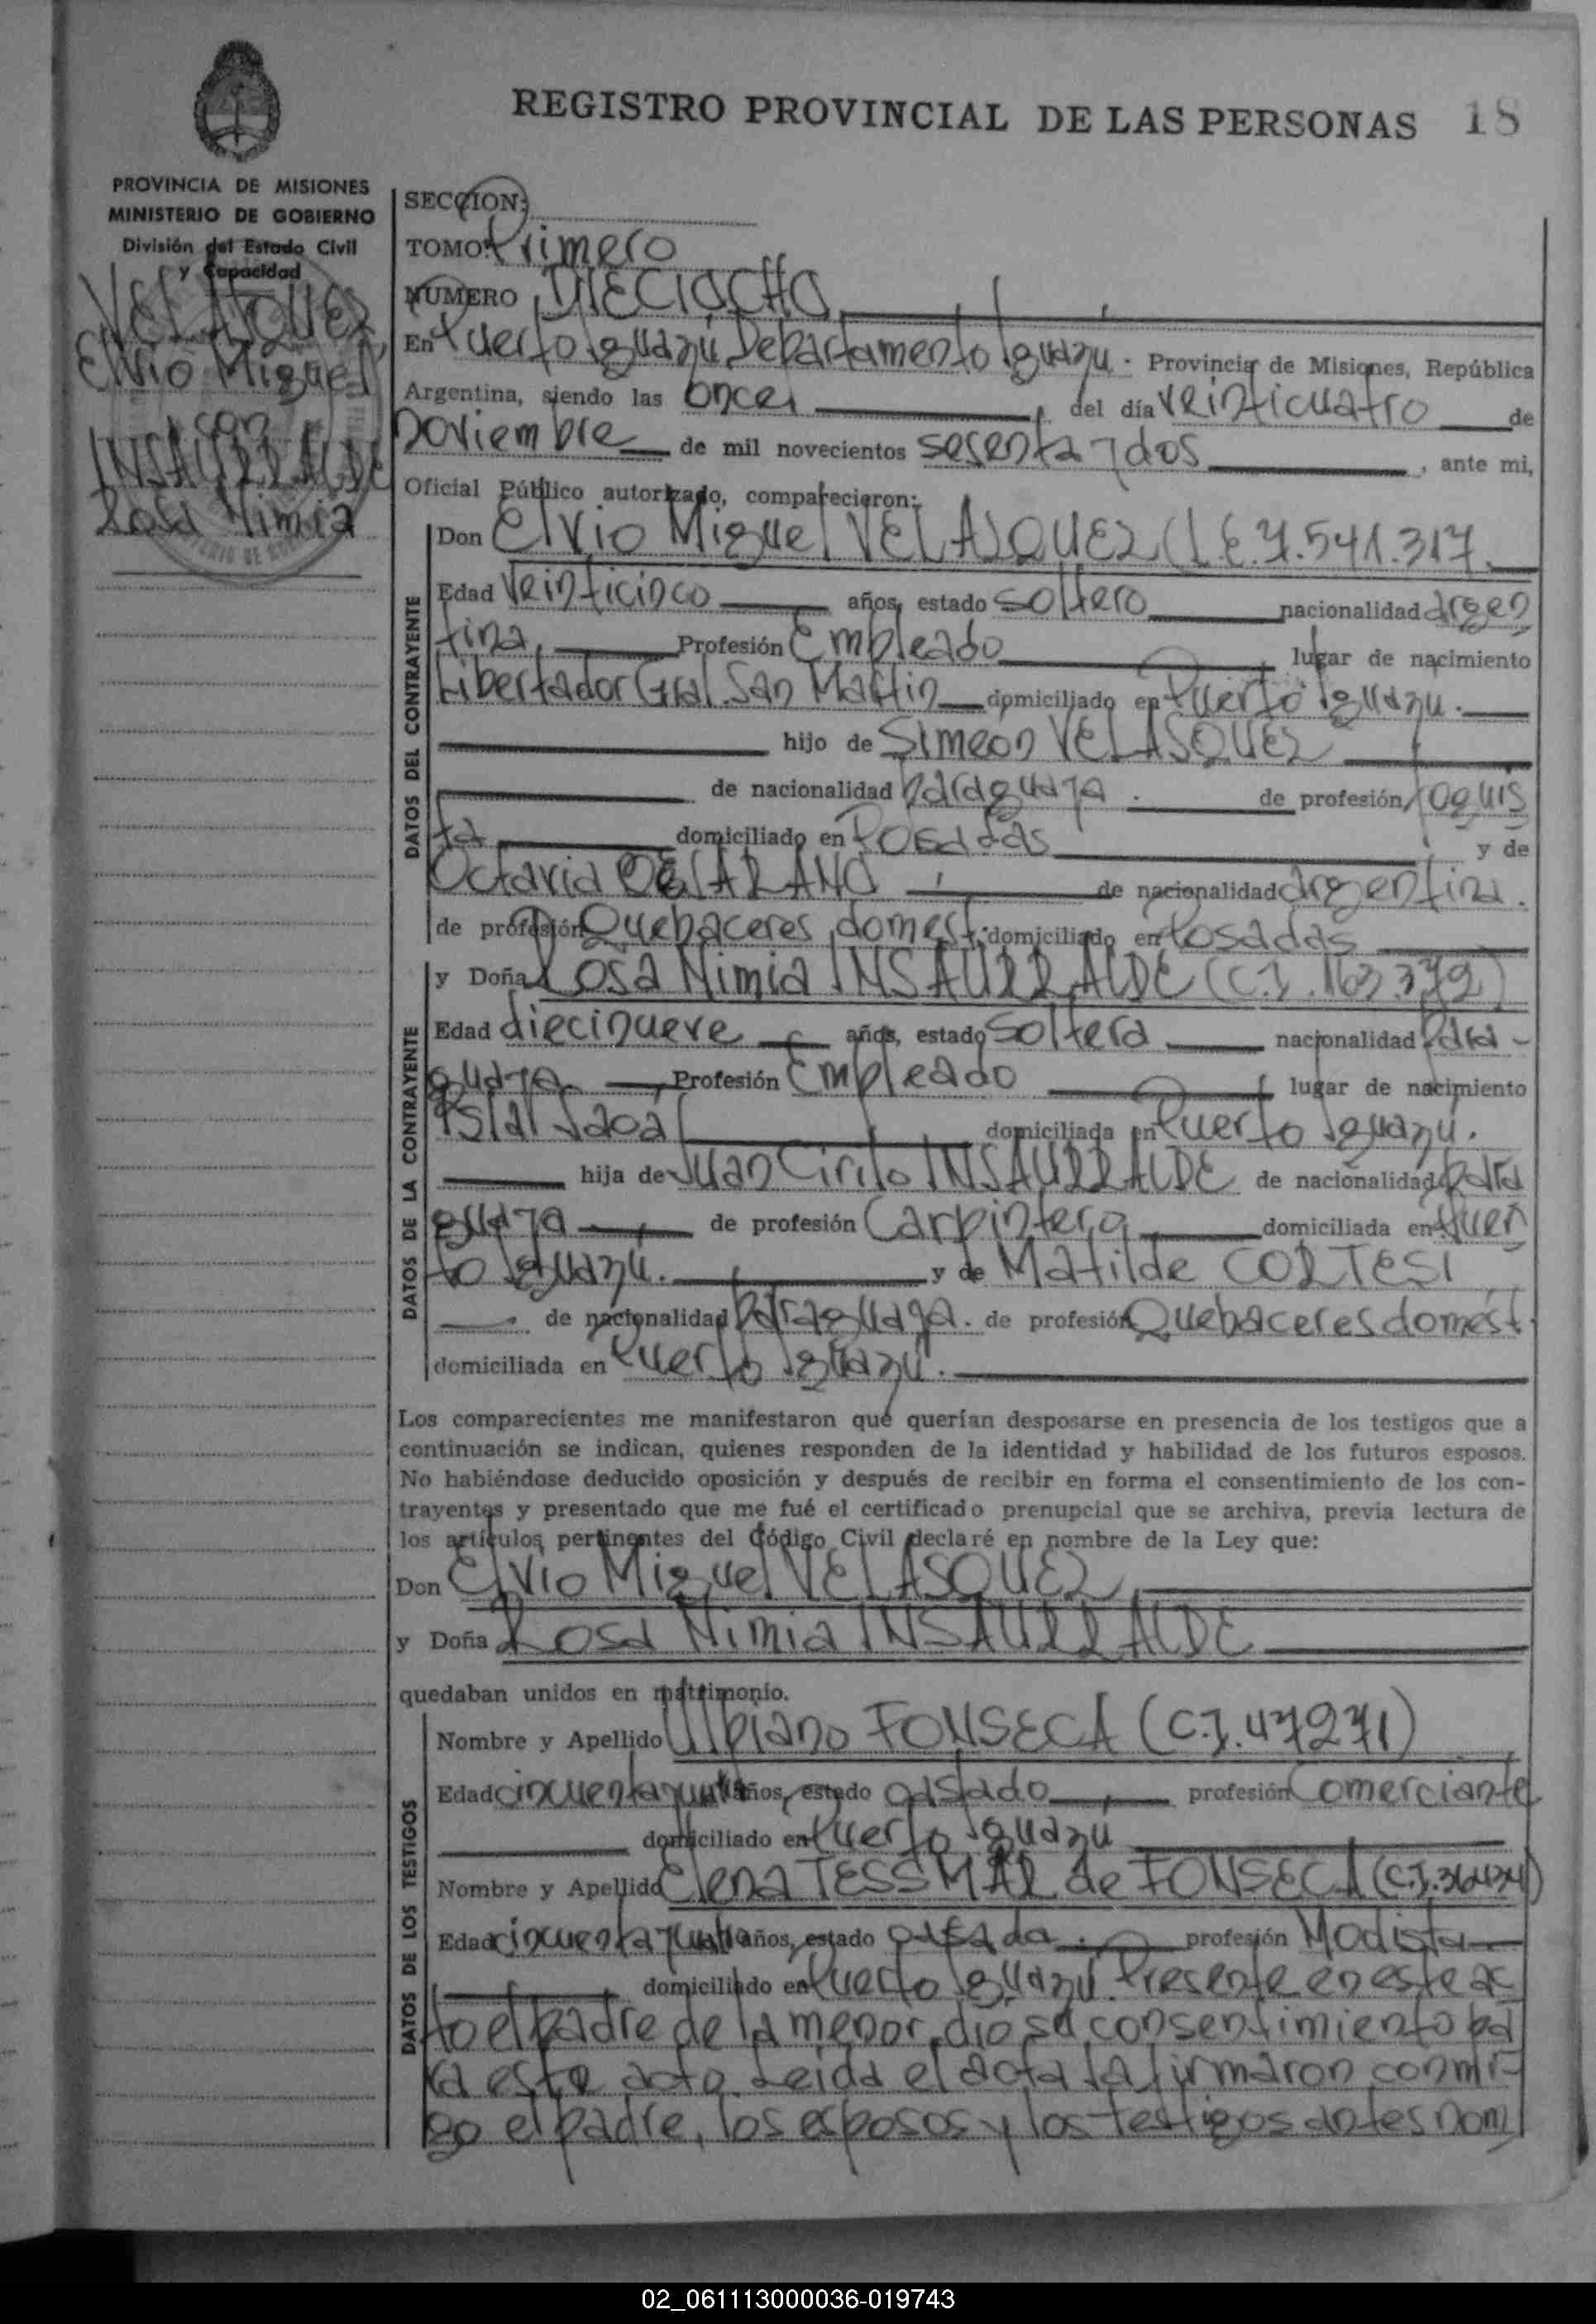 REGISTRO PROVINCIAL DE LAS PERSONAS 18
PROVINCIA DE MISIONES
MINISTERIO DE GOBIERNO
División del Estado Civil
y Capacidad
VELASQUEZ
Elvio Miguel
con
INSAURRALDE
Rosa Nimia
SECCION:
TOMO: Primero
NUMERO DIECIOCHO
En Puerto Iguazú Departamento Iguazú. Provincia de Misiones, República
Argentina, siendo las once, del día veinticuatro de
noviembre de mil novecientos sesenta y dos, ante mi,
Oficial Público autorizado, comparecieron:
DATOS DEL CONTRAYENTE
Don Elvio Miguel VELASQUEZ (L.E. 7.541.317.
Edad veinticinco años, estado soltero nacionalidad argen
tina, Profesión Empleado lugar de nacimiento
Libertador Gral. San Martin domiciliado en Puerto Iguazu.
hijo de Simeon VELASQUEZ
de nacionalidad paraguaya. de profesión foguis
ta domiciliado en Posadas y de
Octavia de nacionalidad argentina.
de profesión Quehaceres domest. domiciliado en Posadas
DATOS DE LA CONTRAYENTE
y Doña Rosa Nimia INSAURRALDE (C.I. 163.379)
Edad diecinueve años, estado soltera nacionalidad Para-
guaya, Profesión Empleado lugar de nacimiento
domiciliada en Puerto Iguazú.
hija de Juan Cirilo INSAURRALDE de nacionalidad para
guaya de profesión Carpintero domiciliada en Puer
to Iguazú. y de Matilde CORTESI
de nacionalidad paraguaya. de profesión Quehaceres domest.
domiciliada en Puerto Iguazú.
Los comparecientes me manifestaron que querían desposarse en presencia de los testigos que a
continuación se indican, quienes responden de la identidad y habilidad de los futuros esposos.
No habiéndose deducido oposición y después de recibir en forma el consentimiento de los con-
trayentes y presentado que me fué el certificado prenupcial que se archiva, previa lectura de
los artículos pertinentes del Código Civil declaré en nombre de la Ley que:
Don Elvio Miguel VELASQUEZ
y Doña Rosa Nimia INSAURRALDE
quedaban unidos en matrimonio.
DATOS DE LOS TESTIGOS
Nombre y Apellido Ulpiano FONSECA (C.I. 47271)
Edad cincuenta y años, estado casado profesión Comerciante
domiciliado en Puerto Iguazu
Nombre y Apellido Elena TESSMAR de FONSECA (C.I. 
Edad cincuenta y años, estado casada. profesión Modista
domiciliado en Puerto Iguazú. Presente en este ac
to el padre de la menor, dio su consentimiento pa
ra este acto. Leida el acta la firmaron conmi-
go el padre, los esposos y los testigos antes nom
02_061113000036-019743